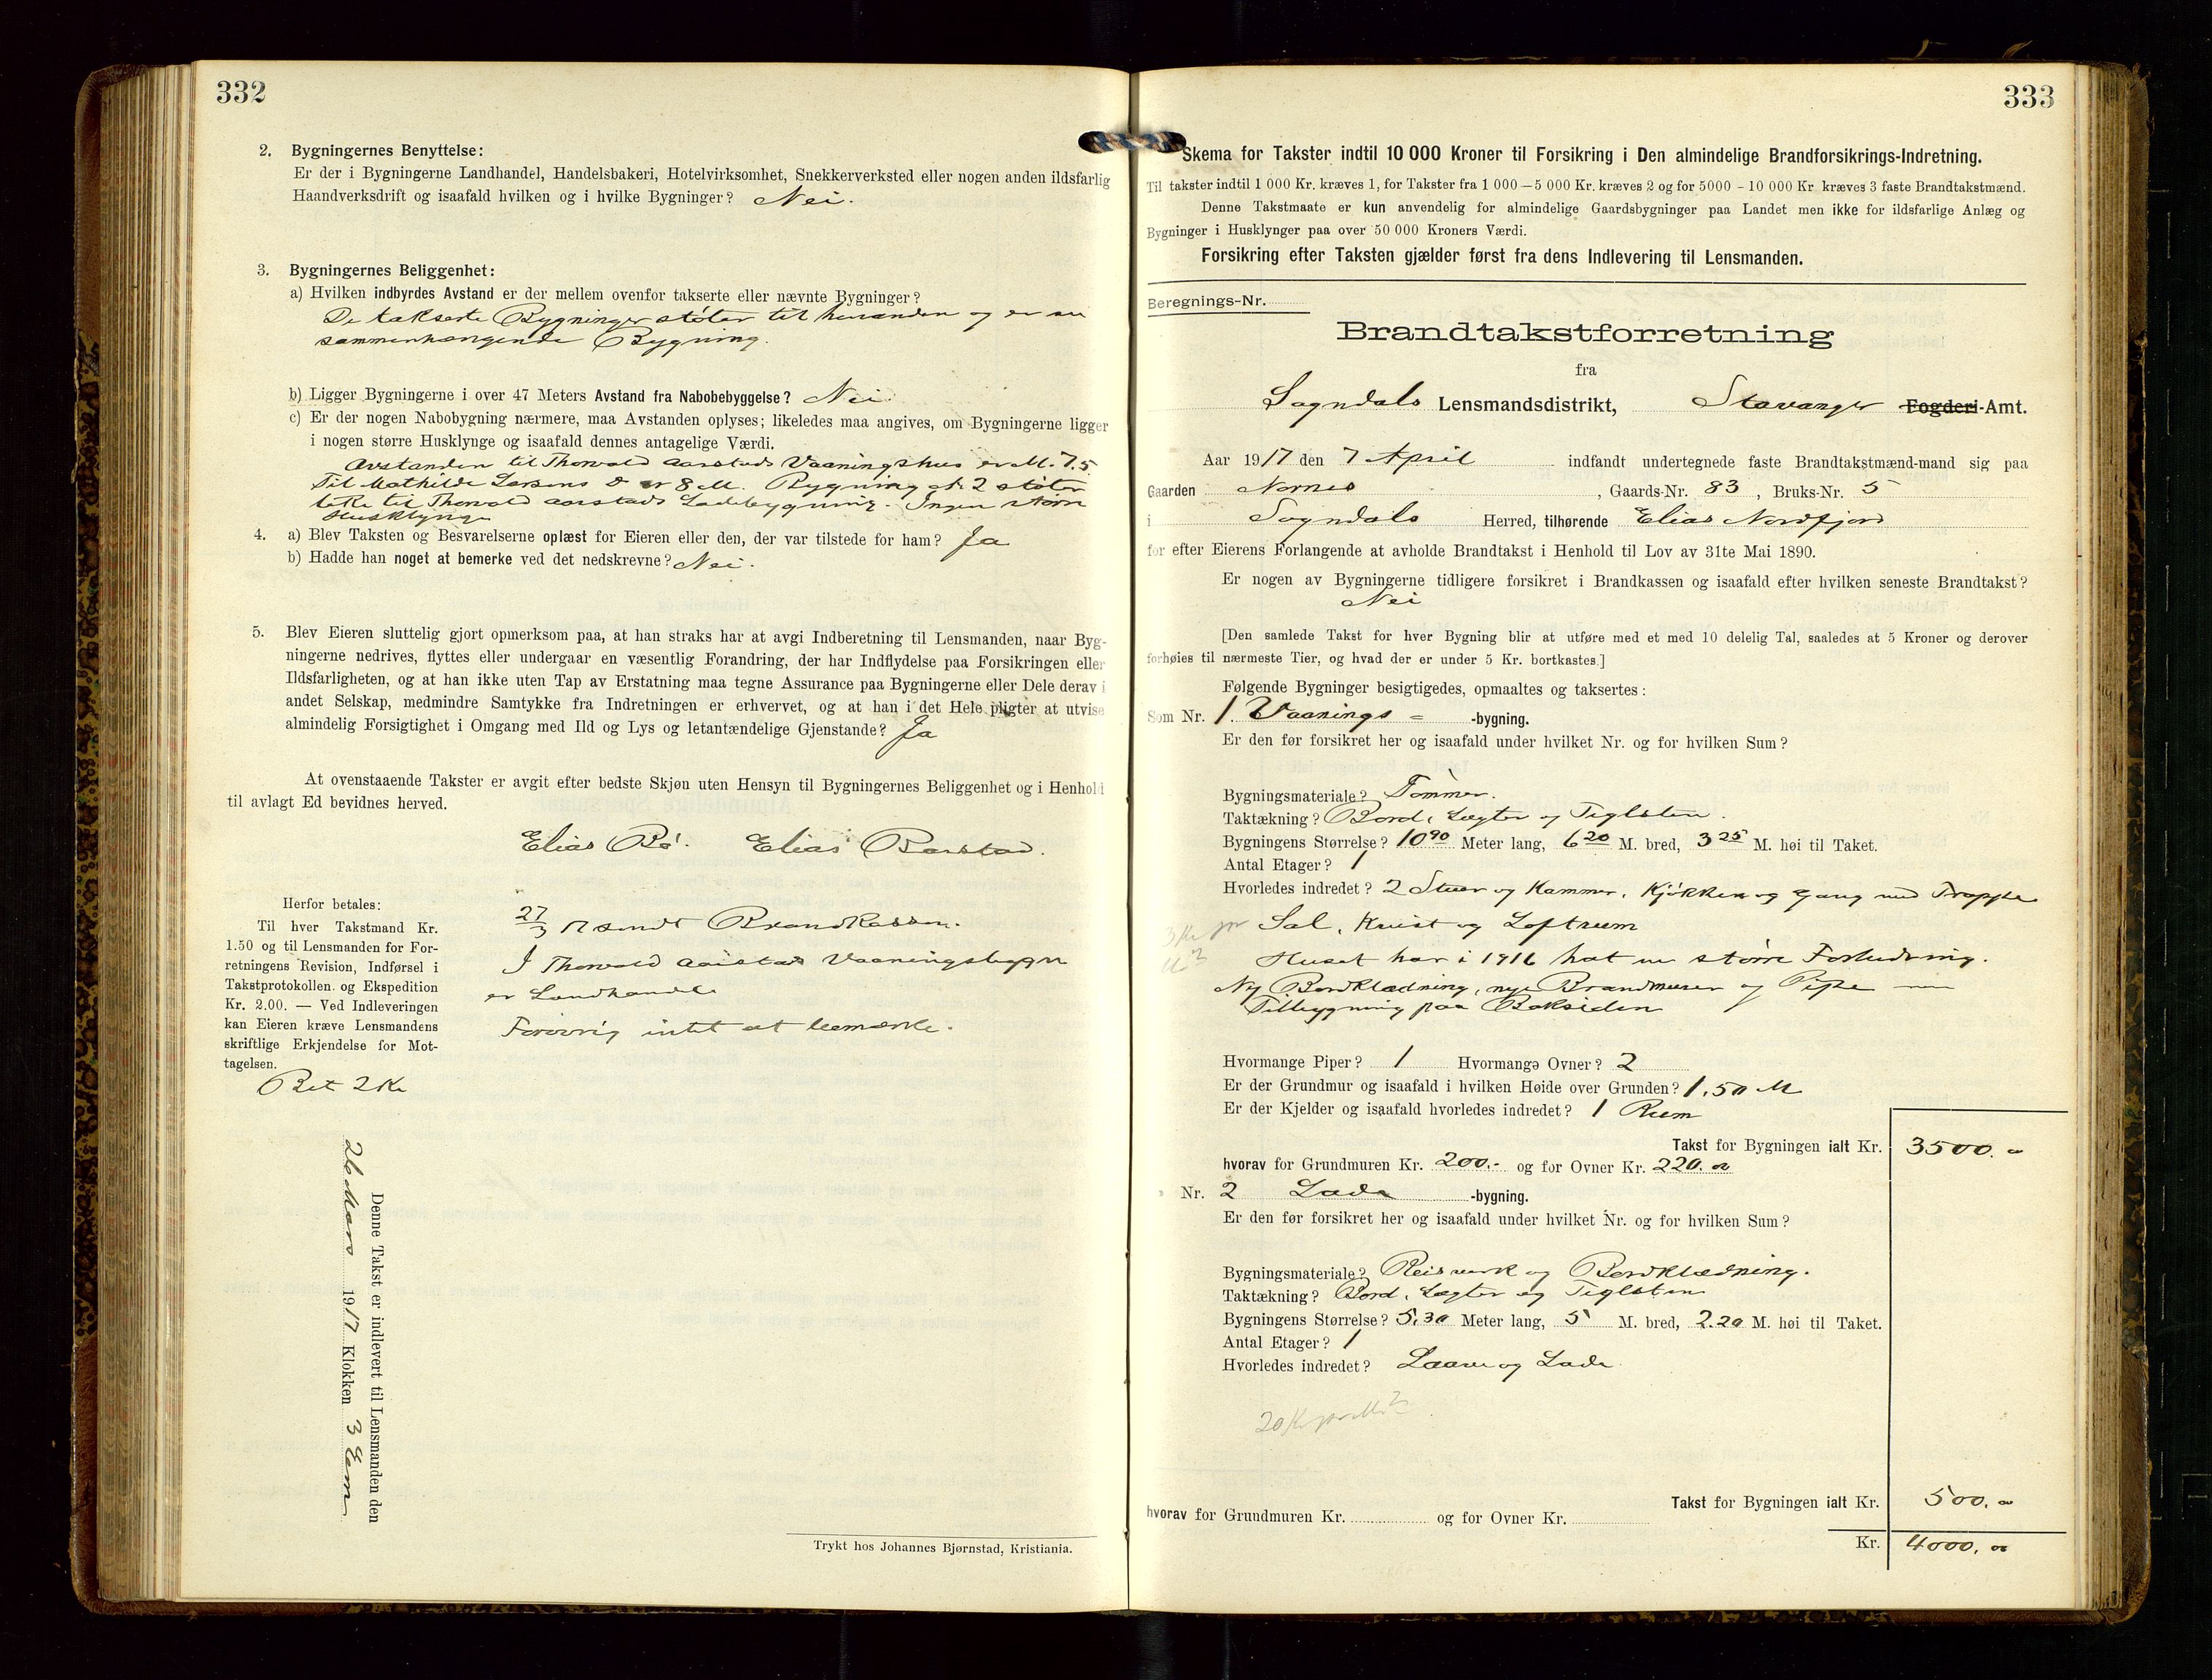 332
2. Bygningernes Benyttelse:
Er der i Bygningerne Landhandel, Handelsbakeri, Hotelvirksomhet, Snekkerverksted eller nogen anden ildsfarlig
Haandverksdrift og isaafald hvilken og i hvilke Bygninger? Nei.
3. Bygningernes Beliggenhet:
a) Hvilken indbyrdes Avstand er der mellem ovenfor takserte eller nævnte Bygninger?
De takserte Bygninger støter til hverandre og er en
sammenhængende Bygning.
b) Ligger Bygningerne i over 47 Meters Avstand fra Nabobebyggelse? Nei.
c) Er der nogen Nabobygning nærmere, maa Avstanden oplyses; likeledes maa angives, om Bygningerne ligger
i nogen større Husklynge og isaafald dennes antagelige Værdi.
Avstanden til Thorvald Aarstads Vaaningshus er M. 7.5
Til Mathilde Larsens er 8 M. Bygning No 2 støter
like til Thorvald Aarstads Ladebygning. Ingen større
Husklynge
4. a) Blev Taksten og Besvarelserne oplæst for Eieren eller den, der var tilstede for ham? Ja
b) Hadde han noget at bemerke ved det nedskrevne? Nei.
5. Blev Eieren sluttelig gjort opmerksom paa, at han straks har at avgi Indberetning til Lensmanden, naar Byg-
ningerne nedrives, flyttes eller undergaar en væsentlig Forandring, der har Indflydelse paa Forsikringen eller
Ildsfarligheten, og at han ikke uten Tap av Erstatning maa tegne Assurance paa Bygningerne eller Dele derav i
andet Selskap, medmindre Samtykke fra Indretningen er erhvervet, og at han i det Hele pligter at utvise
almindelig Forsigtighet i Omgang med Ild og Lys og letantændelige Gjenstande? Ja
At ovenstaaende Takster er avgit efter bedste Skjøn uten Hensyn til Bygningernes Beliggenhet og i Henhold
til avlagt Ed bevidnes herved.
Elias Bø. Elias Barstad.
Herfor betales:
Til hver Takstmand Kr.
1.50 og til Lensmanden for For-
retningens Revision, Indførsel i
Takstprotokollen og Ekspedition
Kr. 2.00. — Ved Indleveringen
kan Eieren kræve Lensmandens
skriftlige Erkjendelse for Mot-
tagelsen.
Bet 2 Kr
27/3 17 sendt Brandkassen.
I Thorvald Aarstads Vaaningsbygn
er Landhandel
Forøvrig intet at bemærke.
Denne Takst er indlevert til Lensmanden den
26 Mars 1917 Klokken 3 Em
Trykt hos Johannes Bjørnstad, Kristiania.
333
Skema for Takster indtil 10 000 Kroner til Forsikring i Den almindelige Brandforsikrings-Indretning.
Til takster indtil 1 000 Kr. kræves 1, for Takster fra 1 000 — 5 000 Kr. kræves 2 og for 5000 - 10 000 Kr kræves 3 faste Brandtakstmænd.
Denne Takstmaate er kun anvendelig for almindelige Gaardsbygninger paa Landet men ikke for ildsfarlige Anlæg og
Bygninger i Husklynger paa over 50 000 Kroners Værdi.
Forsikring efter Taksten gjælder først fra dens Indlevering til Lensmanden.
Beregnings-Nr.
Brandtakstforretning
fra
Sogndals Lensmandsdistrikt, Stavanger Fogderi-Amt.
Aar 1917 den 7 April indfandt undertegnede faste Brandtakstmænd-mand sig paa
Gaarden Nornes, Gaards-Nr. 83, Bruks-Nr. 5
i Sogndals Herred, tilhørende Elias Nordfjord
for efter Eierens Forlangende at avholde Brandtakst i Henhold til Lov av 31te Mai 1890.
Er nogen av Bygningerne tidligere forsikret i Brandkassen og isaafald efter hvilken seneste Brandtakst?
Nei
[Den samlede Takst for hver Bygning blir at utføre med et med 10 delelig Tal, saaledes at 5 Kroner og derover
forhøies til nærmeste Tier, og hvad der er under 5 Kr. bortkastes.]
Følgende Bygninger besigtigedes, opmaaltes og taksertes:
Som Nr. 1. Vaanings = -bygning.
Er den før forsikret her og isaafald under hvilket Nr. og for hvilken Sum?
Bygningsmateriale? Tømmer.
Taktækning? Bord, Lægter og Teglsten.
Bygningens Størrelse? 10 90 Meter lang, 6 20 M. bred, 3 25 M. høi til Taket.
Antal Etager? 1
Hvorledes indredet? 2 Stuer og Kammer, Kjøkken og Gang med Trappe
Sal, Kvist og Loftrum
Huset har i 1916 hat en større Forbedring.
Ny Bordklædning, nye Brandmurer og Pipe
Tilbygning paa Baksiden
Hvormange Piper? 1 Hvormange Ovner? 2
Er der Grundmur og isaafald i hvilken Høide over Grunden? 1.50 M
Er der Kjelder og isaafald hvorledes indredet? 1 Rum
Takst for Bygningen ialt Kr. 3500.00
hvorav for Grundmuren Kr. 200.- og for Ovner Kr. 220.00
Nr. 2 Lade -bygning.
Er den før forsikret her og isaafald under hvilket Nr. og for hvilken Sum?
Bygningsmateriale? Reisverk og Bordklædning.
Taktækning? Bord, Lægter og Teglsten
Bygningens Størrelse? 5.30 Meter lang, 5 M. bred, 2.20 M. høi til Taket.
Antal Etager? 1
Hvorledes indredet? Laave og Lade
20 Kr pr M2
Takst for Bygningen ialt Kr. 500.00
hvorav for Grundmuren Kr. og for Ovner Kr.
Kr. 4000.00